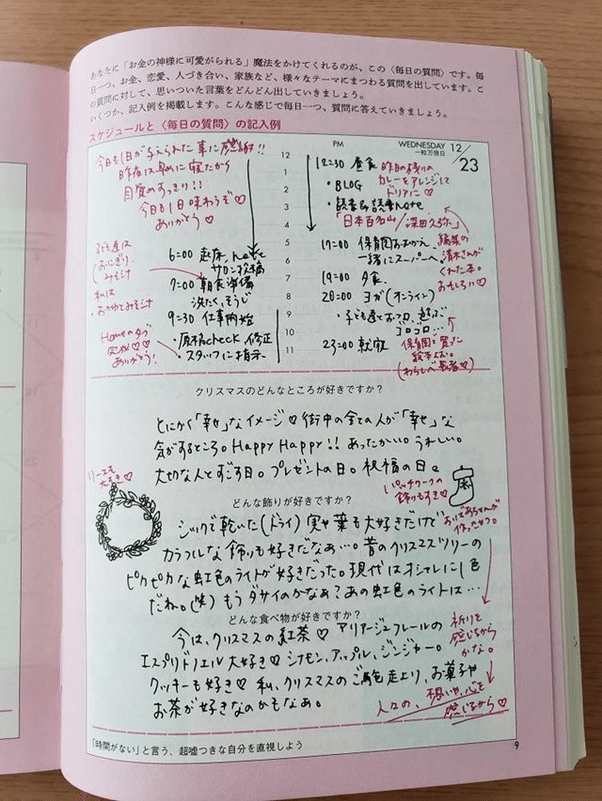 あなたに「お金の神様に可愛がられる」魔法をかけてくれるのが、この〈毎日の質問〉です。毎
日一つ、お金、恋愛、人づき合い、家族など、様々なテーマにまつわる質問を出しています。こ
の質問に対して、思いついた言葉をどんどん出していきましょう。
いくつか、記入例を掲載します。こんな感じで毎日一つ、質問に答えていきましょう。
スケジュールと〈毎日の質問〉の記入例
PM
WEDNESDAY 12/23
一粒万倍日
今日も1日が与えられた事に感謝!!
昨夜は早めに寝たから
目覚めすっきり!!
今日も1日味わうぞ
ありがとう♡
12
1
2
3
4
5
6
7
8
9
10
11
子ども達は
おにぎり、
みそ汁
私は
おつけとみそ汁
6:00 起床、note
サロン投稿
7:00 朝食準備
洗たく、そうじ
9:30 仕事開始
・原稿check 修正
・スタッフに指示
ありがとう!
12:30 昼食
昨日の残りの
カレーをアレンジして
ドリアに♡
・BLOG
・読書&読書note
「日本百名山/深田久弥」
編集の
清水さんが
くれた本。
おもしろい♡
17:00 保育園おむかえ
一緒にスーパーへ
19:00 夕食
20:00 ヨガ(オンライン)
・子ども達とおフロ、遊ぶ
ゴロゴロ…
23:00 就寝
保育園で買った
絵本よむ。
(わらしべ長者♡)
クリスマスのどんなところが好きですか?
とにかく「幸せ」なイメージ♡街中の全ての人が「幸せ」な
気がするところ。Happy Happy!! あったかい。うれしい。
大切な人とすごす日。プレゼントの日。祝福の日。
リースも
大好き♡
パッチワークの
飾りもすき♡
おばあちゃんが
作ったやつ。
どんな飾りが好きですか?
シックで乾いた(ドライ)実や葉も大好きだけど
カラフルな飾りも好きだなぁ…。昔のクリスマスツリーの
ピカピカな虹色のライトが好きだった。現代はオシャレに1色
だわ。(笑) もうダサイのかなぁ?あの虹色のライトは…
どんな食べ物が好きですか?
今は、クリスマスの紅茶♡ マリアージュフレールの
エスプリドノエル大好き♡シナモン、アップル、ジンジャー。
クッキーも好き♡ 私、クリスマスのご馳走より、お菓子や
お茶が好きなのかもなあ。
祈りを
感じるから
かな。
人々の、想いや、心を
感じるから♡
「時間がない」と言う、超嘘つきな自分を直視しよう
9